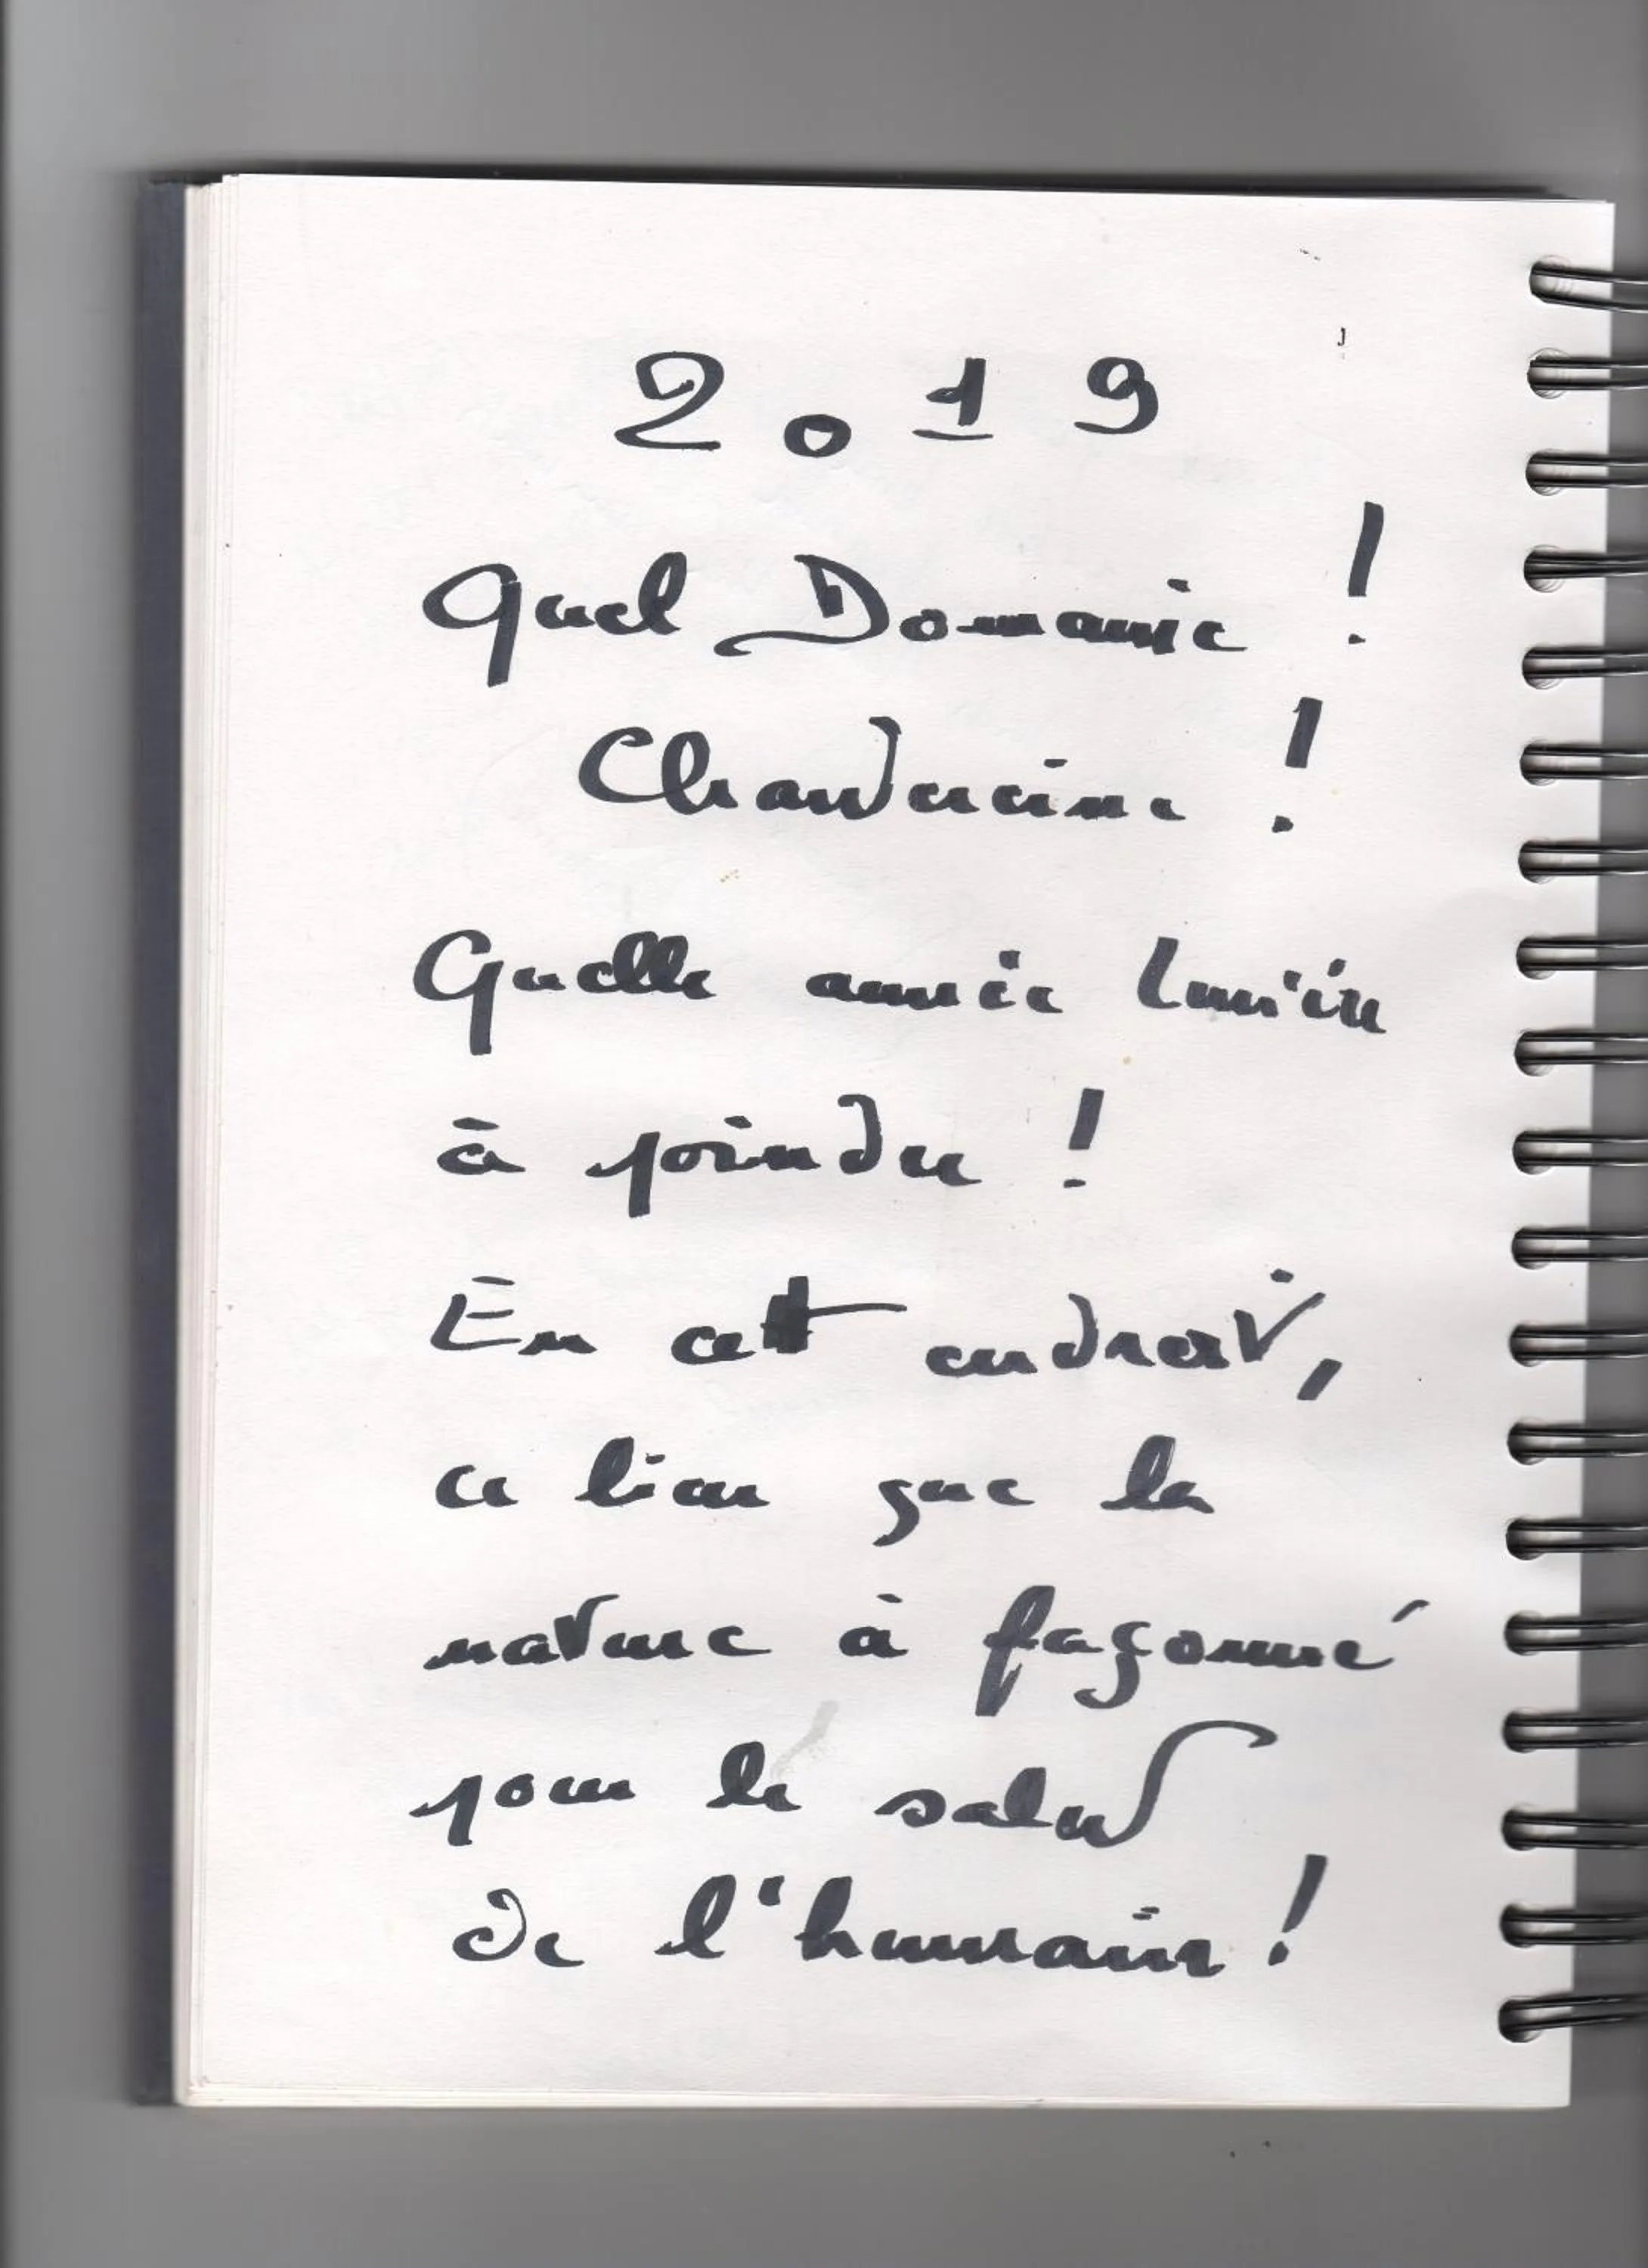 2019
Quel Domanie !
!
Quelle année lumière
à poindre !
En cet endroit,
ce lieu que la
nature à façonné
pour le salut
de l'humain !